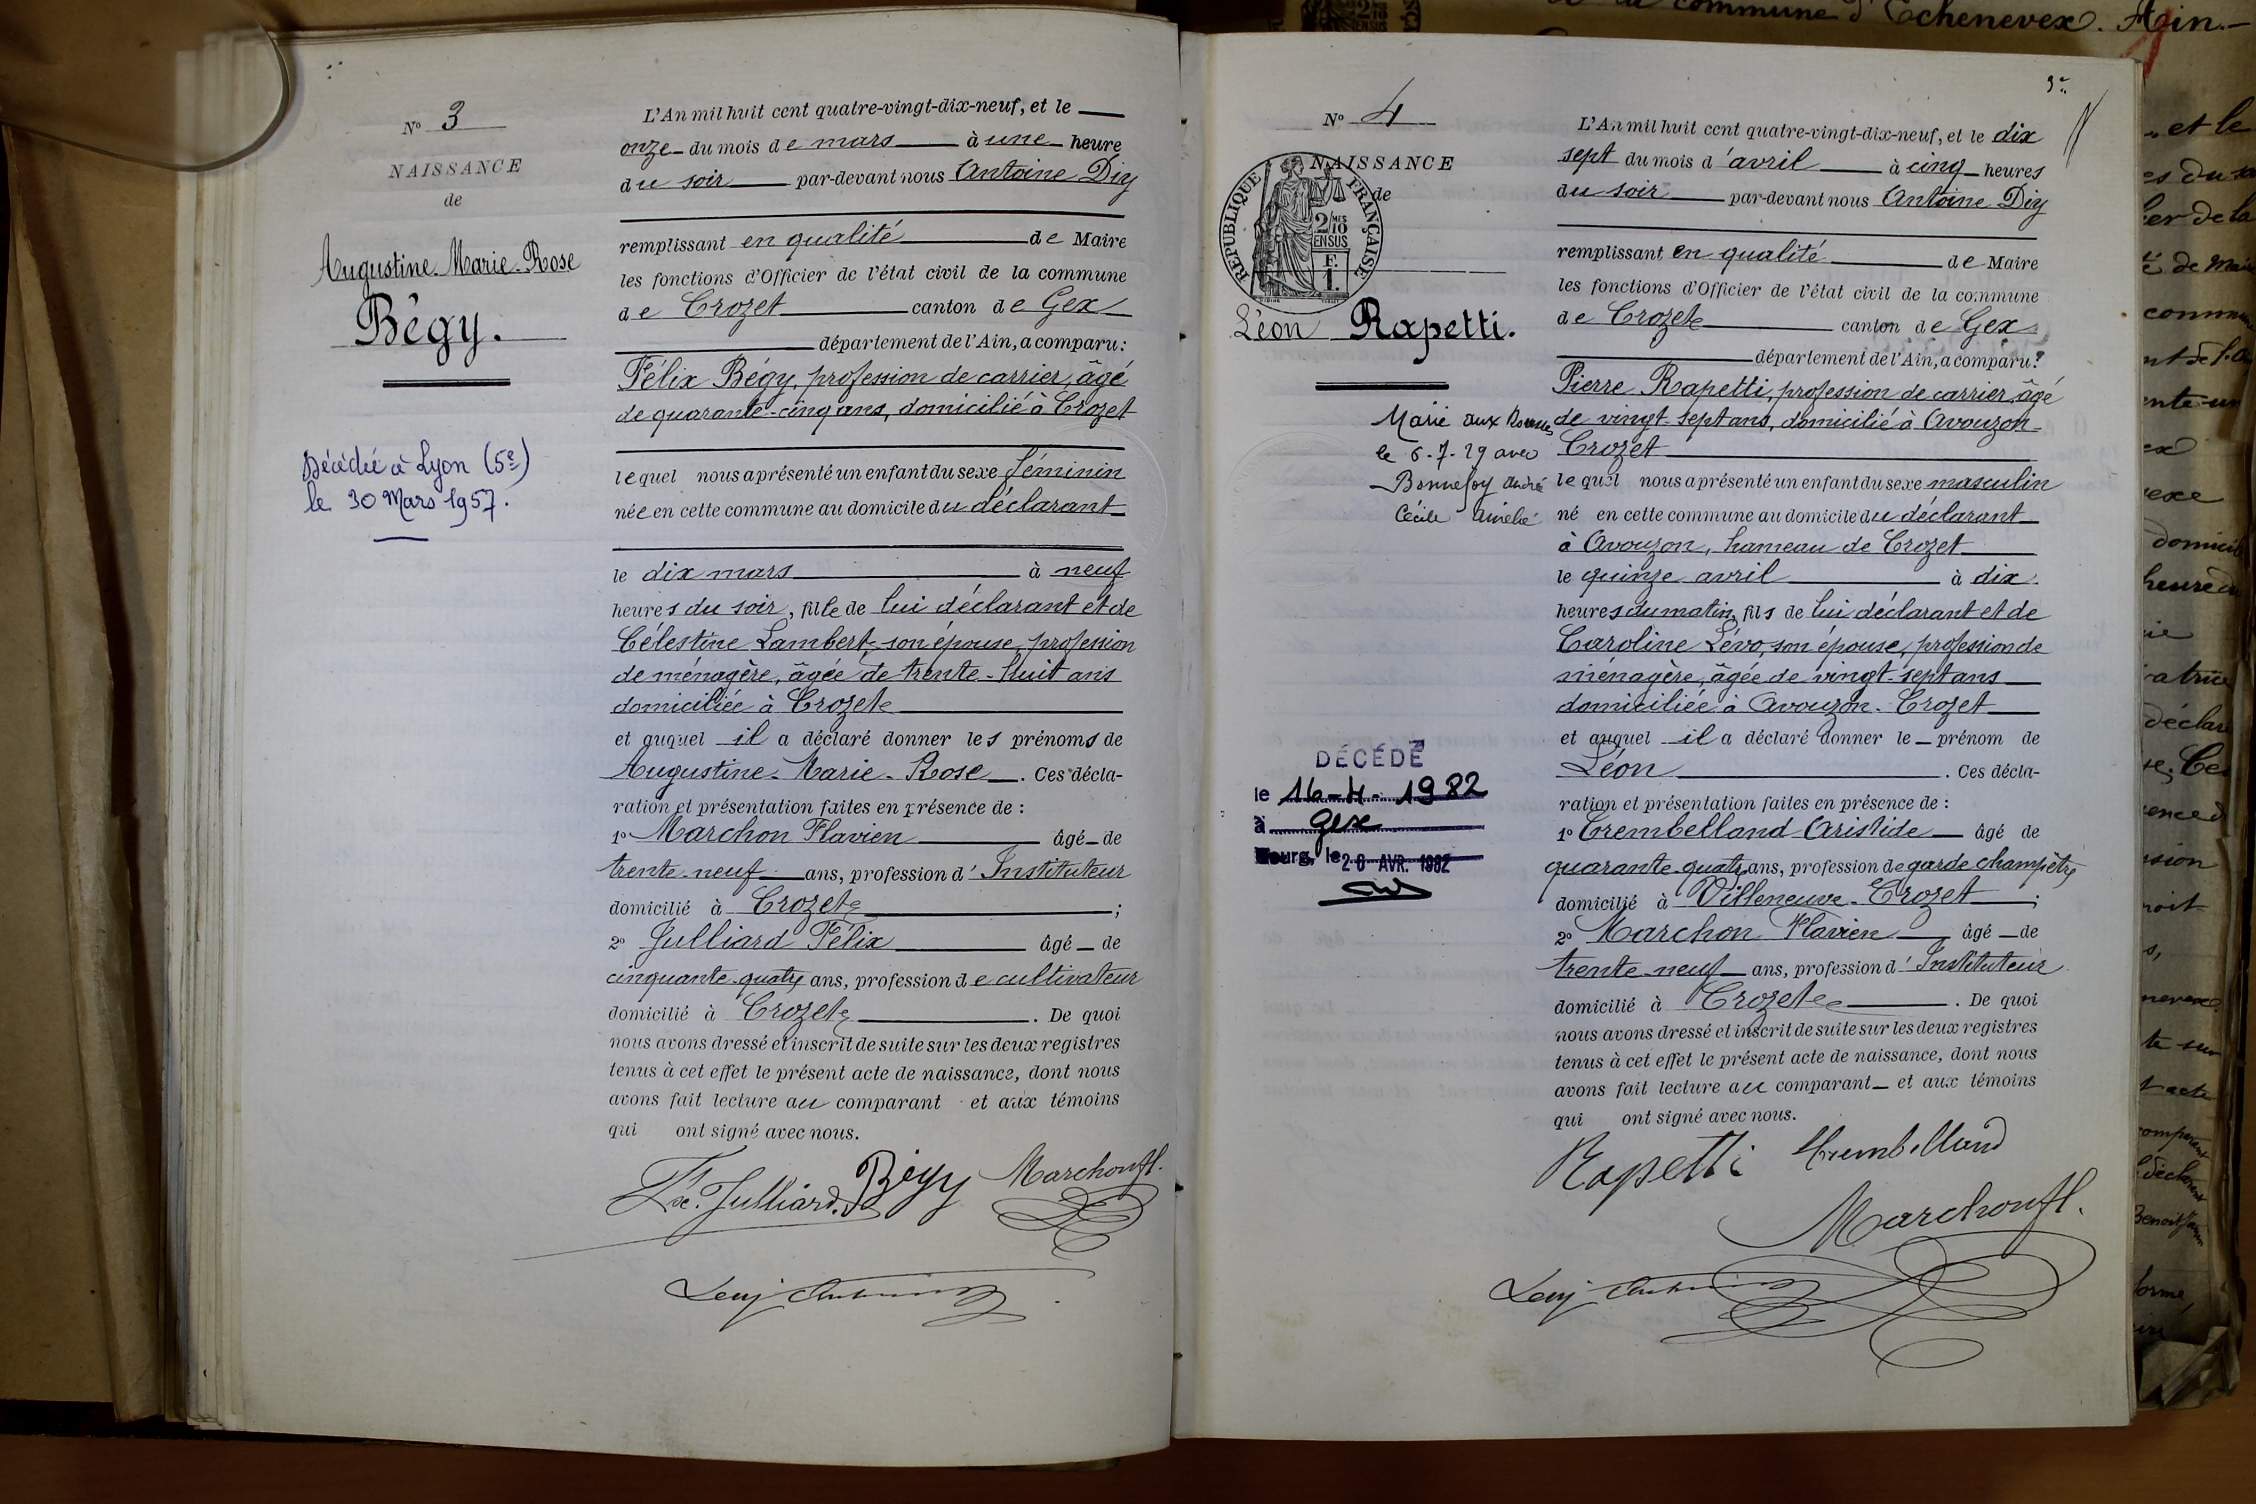 N° 3
NAISSANCE
de
Augustine-Marie-Rose
Bégy.
Décédée à Lyon (5e)
le 30 Mars 1957.
L'An mil huit cent quatre-vingt-dix-neuf, et le
onze du mois de mars à une heure
du soir par-devant nous Antoine Diy
remplissant en qualité de Maire
les fonctions d'Officier de l'état civil de la commune
de Crozet canton de Gex
département de l'Ain, a comparu:
Félix Bégy, profession de carrier, âgé
de quarante-cinq ans, domicilié à Crozet
lequel nous a présenté un enfant du sexe féminin
née en cette commune au domicile du déclarant
le dix mars à neuf
heures du soir, fille de lui déclarant et de
Célestine Lambert, son épouse, profession
de ménagère, âgée de trente-huit ans
domiciliée à Crozet
et auquel il a déclaré donner les prénoms de
Augustine-Marie-Rose. Ces décla-
ration et présentation faites en présence de :
1° Marchon Flavien âgé de
trente-neuf ans, profession d'Instituteur
domicilié à Crozet ;
2° Julliard Félix âgé de
cinquante-quatre ans, profession de cultivateur
domicilié à Crozet. De quoi
nous avons dressé et inscrit de suite sur les deux registres
tenus à cet effet le présent acte de naissance, dont nous
avons fait lecture au comparant et aux témoins
qui ont signé avec nous.
Julliard Bégy Marchon fl.
3e
N° 4
NAISSANCE
de
REPUBLIQUE FRANÇAISE
2/10
EN SUS
F.
1.
Léon Rapetti.
Marié aux Rousses
le 6-7-29 avec
Bonnefoy Andrée
Cécile Amélie
DÉCÉDÉ
le 16-4-1982
à Gex
Bourg, le 20 AVR. 1982
L'An mil huit cent quatre-vingt-dix-neuf, et le dix
sept du mois d'avril à cinq heures
du soir par-devant nous Antoine Diy
remplissant en qualité de Maire
les fonctions d'Officier de l'état civil de la commune
de Crozet canton de Gex
département de l'Ain, a comparu:
Pierre Rapetti, profession de carrier, âgé
de vingt-sept ans, domicilié à Avouzon-
Crozet
lequel nous a présenté un enfant du sexe masculin
né en cette commune au domicile du déclarant
à Avouzon, hameau de Crozet
le quinze avril à dix
heures du matin, fils de lui déclarant et de
Caroline Lévo, son épouse, profession de
ménagère, âgée de vingt-sept ans
domiciliée à Avouzon-Crozet
et auquel il a déclaré donner le prénom de
Léon. Ces décla-
ration et présentation faites en présence de :
1° Trembelland Aristide âgé de
quarante-quatre ans, profession de garde champêtre
domicilié à Villeneuve-Crozet ;
2° Marchon Flavien âgé de
trente-neuf ans, profession d'Instituteur
domicilié à Crozet. De quoi
nous avons dressé et inscrit de suite sur les deux registres
tenus à cet effet le présent acte de naissance, dont nous
avons fait lecture au comparant et aux témoins
qui ont signé avec nous.
Rapetti Trembelland
Marchon fl.
commune d'Echenevex. Ain.-